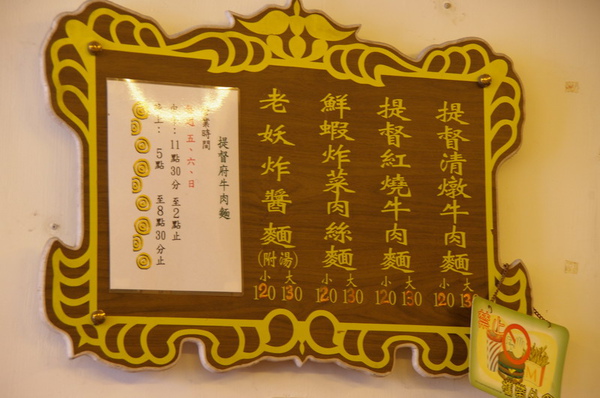 提督清燉牛肉麵
小 大
120 13
提督紅燒牛肉麵
小 大
120 130
鮮蝦炸菜肉絲麵
小 大
120 130
老妖炸醬麵
(附湯)
小 大
120 130
提督府牛肉麵
業時間
五、六、日
11點30分 至2點止
5點 至8點30分止
禁止